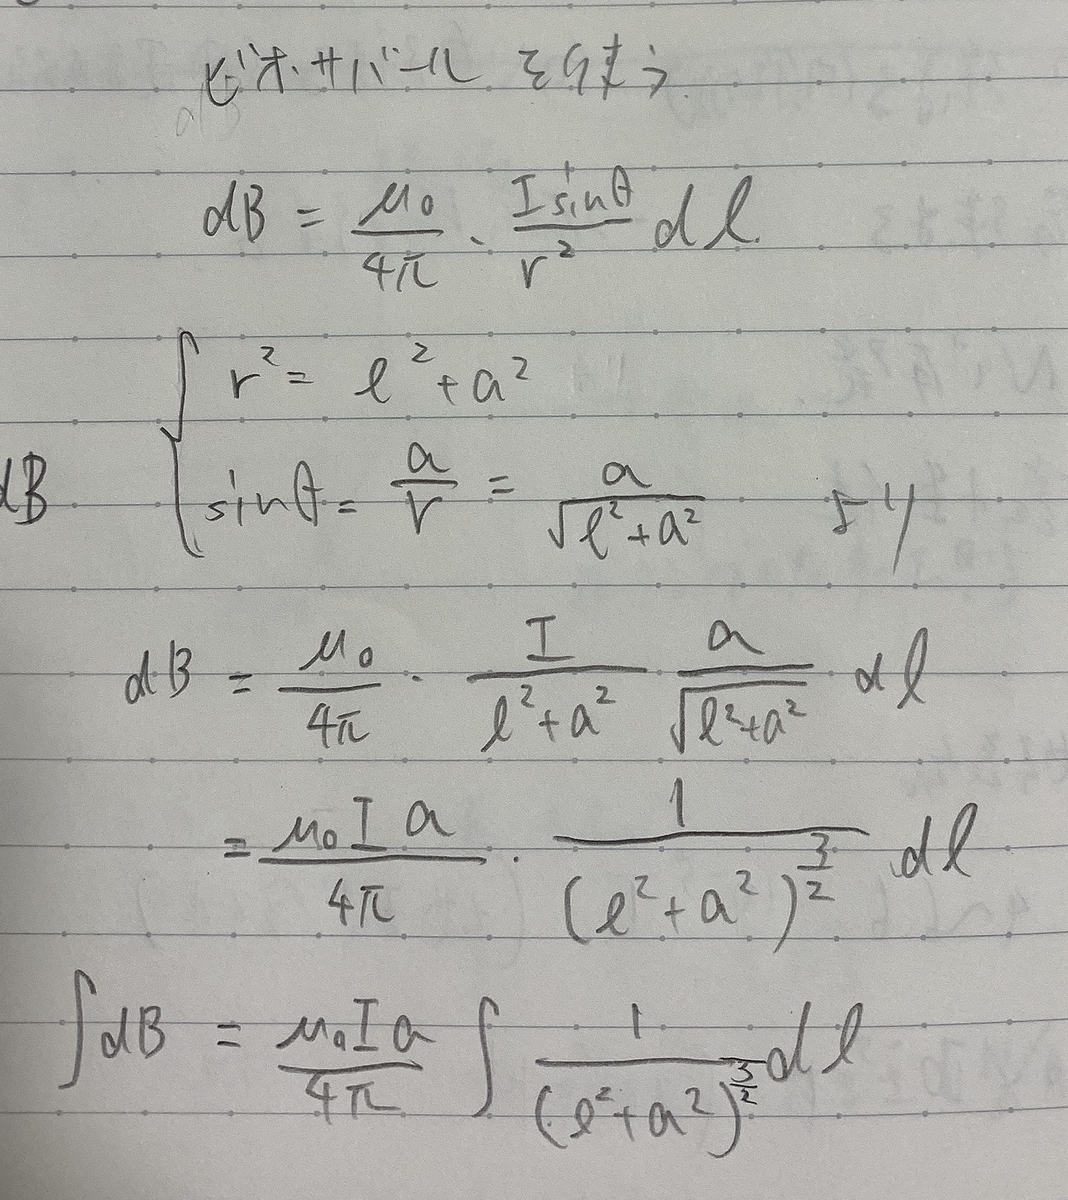 ビオ・サバール を使う
dB = μ₀/4π · I sinθ/r² dl
r² = l² + a²
dB sinθ = a/r = a/√(l²+a²) より
dB = μ₀/4π · I/(l²+a²) a/√(l²+a²) dl
= μ₀Ia/4π · 1/(l²+a²)^(3/2) dl
∫dB = μ₀Ia/4π ∫ 1/(l²+a²)^(3/2) dl